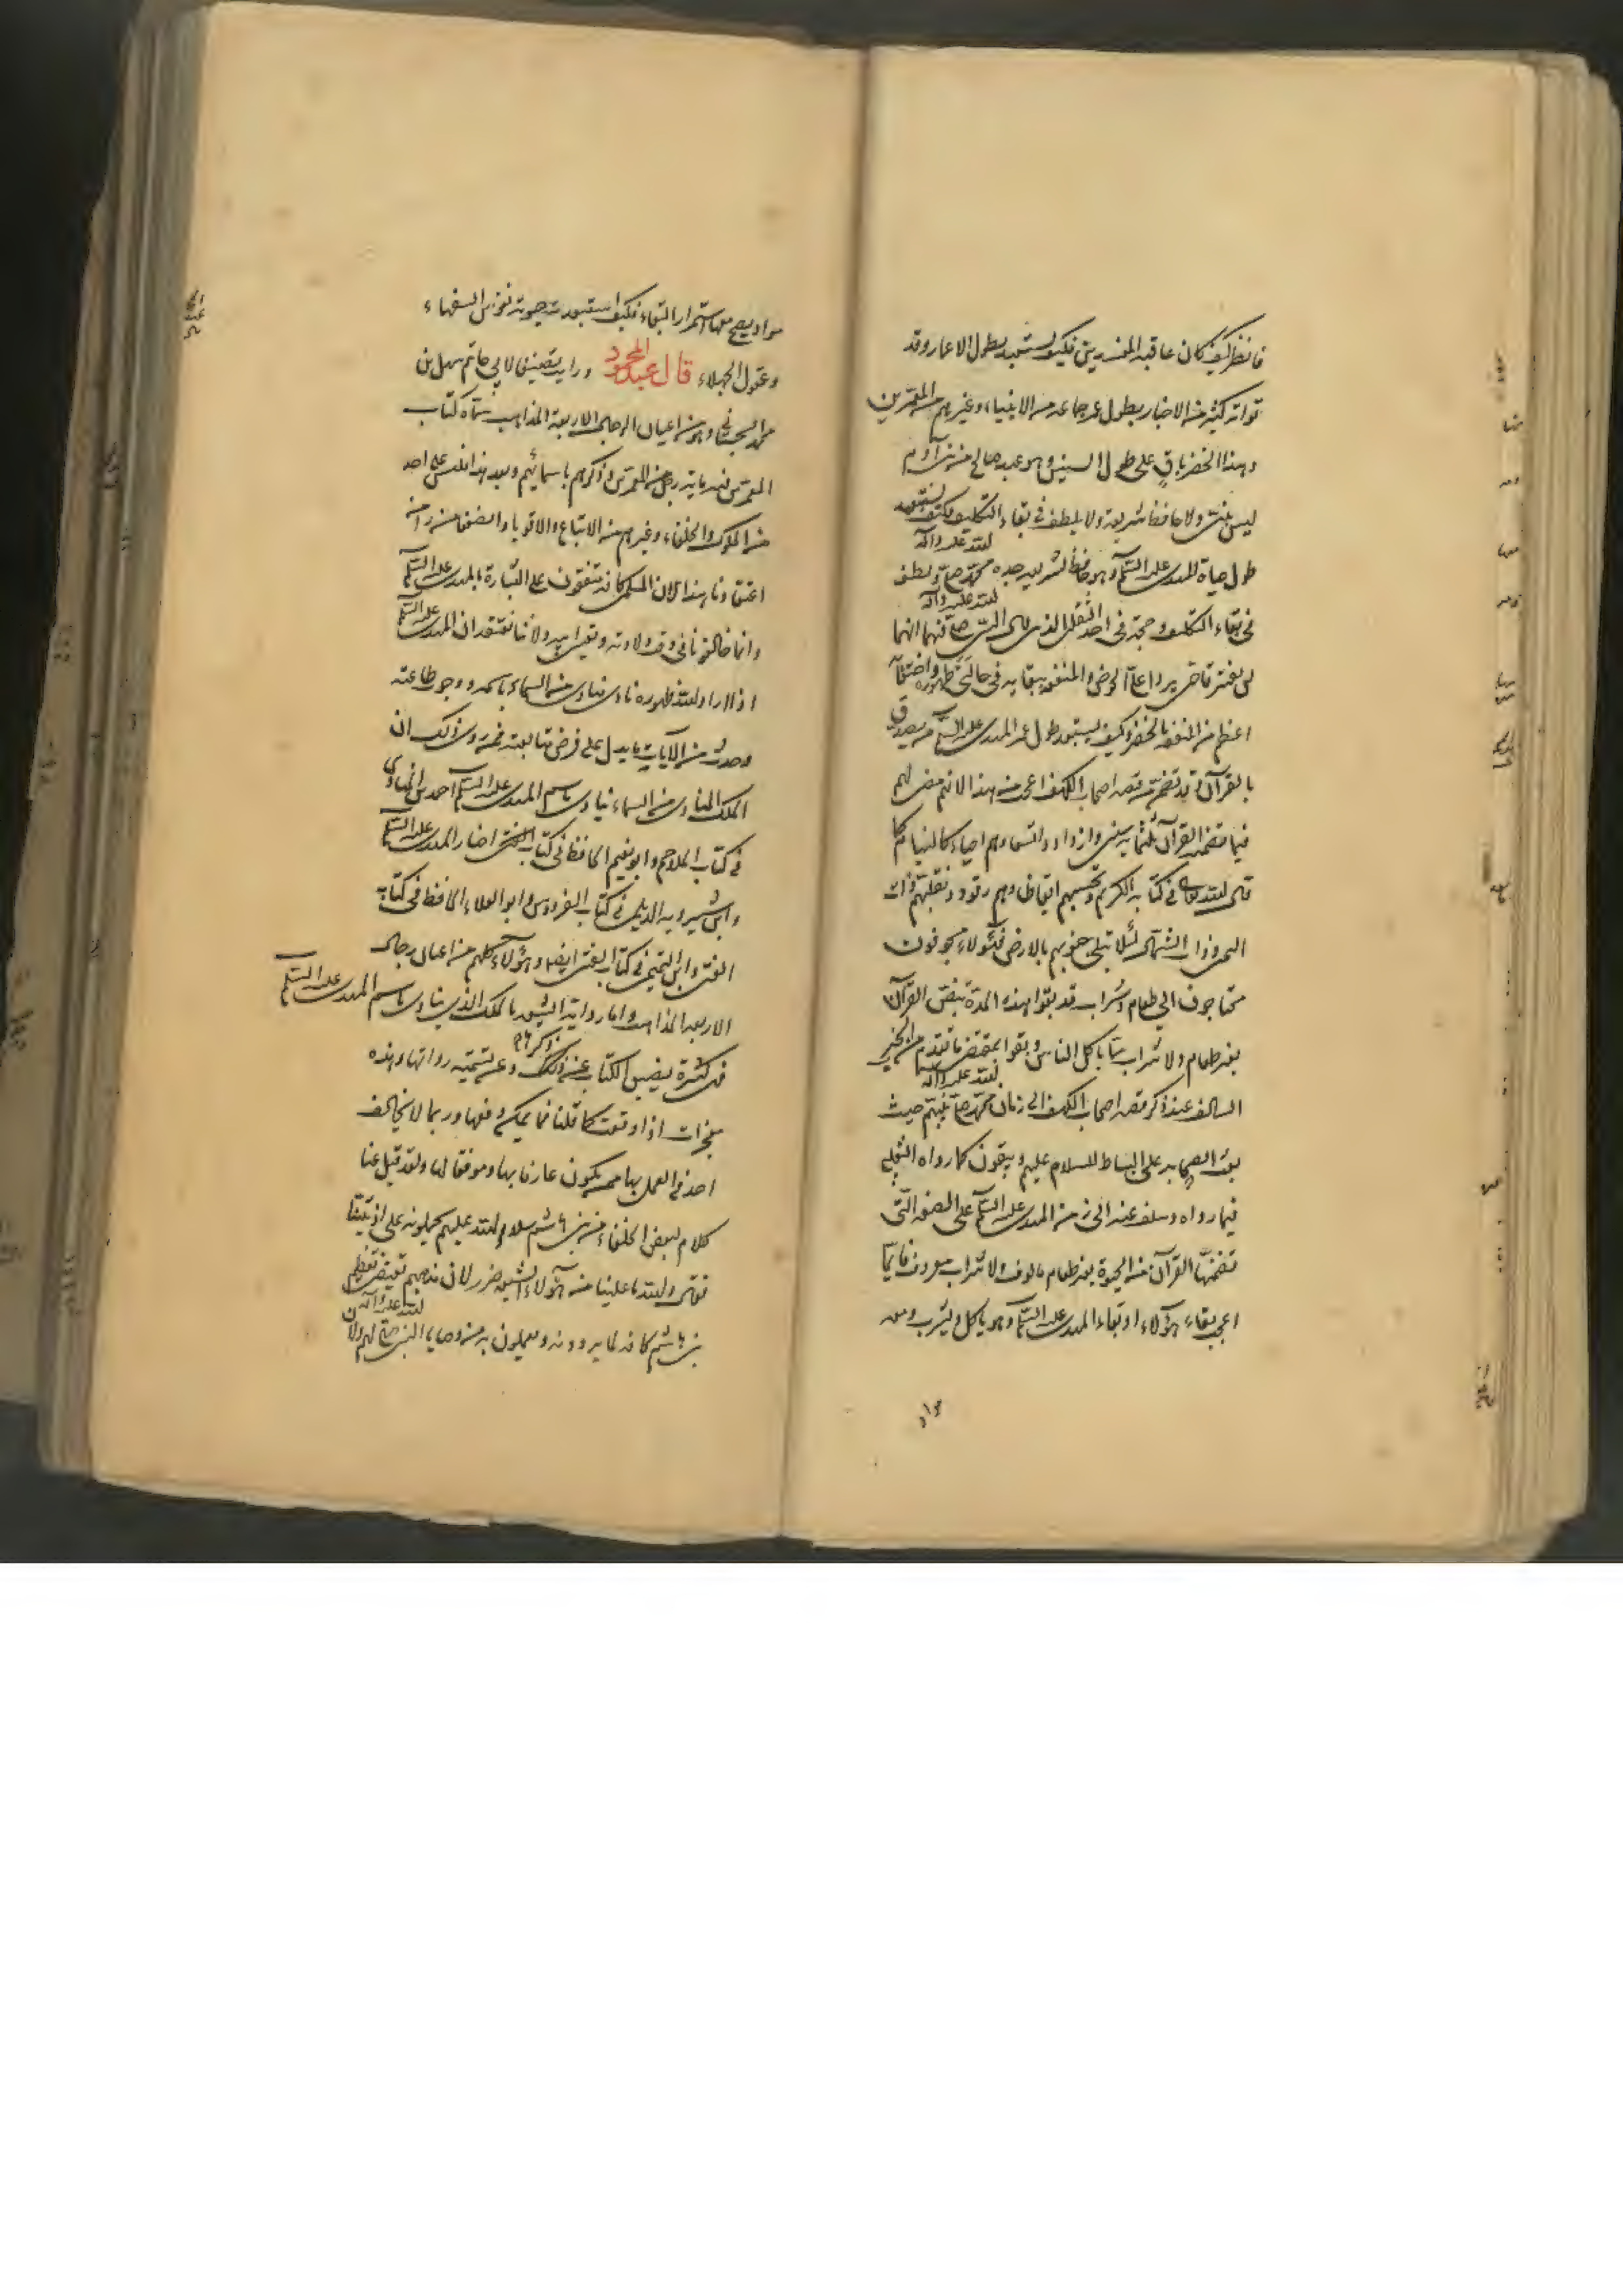 فانظر كيف كان عاقبة المفسدين فكيف يستبعد بطول الاعمار وقد
تواتر كثير من الاخبار بطول عمر جماعة من الانبياء وغيرهم من المعمرين
وهذا الخضر باق على طول السنين وهو عبد صالح من بنى آدم
ليس بنبى ولا حافظ شريعة ولا بلطف فى بقاء التكليف فكيف يستبعد
طول حياة المهدى عليه السلام وهو حافظ لشريعة جده محمد صلى الله عليه وآله ولطف
فى بقاء التكليف وحجة فى احد الثقلين الذين قال النبى صلى الله عليه وآله فيهما انهما
لن يفترقا حتى يردا على الحوض والمنفعة ببقائه فى حالتى ظهوره واختفائه
اعظم من المنفعة بالخضر وكيف يستبعد طول عمر المهدى عليه السلام من يصدق
بالقرآن وقد تضمن قصة اصحاب الكهف اعجب من هذا لانه مضى لهم
فيما تضمنه القرآن ثلثمائة سنين وازدادوا تسعا وهم احياء كالنيام كما
قال الله تعالى فى كتابه الكريم وتحسبهم ايقاظا وهم رقود ونقلبهم ذات
اليمين وذات الشمال لئلا تبلى جنوبهم بالارض فهؤلاء محوفون
محتاجون الى طعام وشراب قد بقوا هذه المدة بنص القرآن
بغير طعام ولا شراب مما ياكل الناس وبقوا بمقتضى ما تقدم من الخبر
السالف عند ذكر قصة اصحاب الكهف الى زمان محمد صلى الله عليه وآله نبيهم حيث
بعث الصحابة على البساط للسلام عليهم ويبقون كما رواه الثعلبى
فيما رواه وسلف عنه الى زمن المهدى عليه السلام على الصفة التى
تضمنها القرآن من الحيوة بغير طعام مالوف ولا شراب معروف فايما
اعجب بقاء هؤلاء او بقاء المهدى عليه السلام وهو ياكل ويشرب ومعه
مواد
مواد يصح معها استمرار البقاء فكيف استبعدت حيوته نفوس السفهاء
وعقول الجهلاء قال عبد المحمود ورايت تصنيفا لابى حاتم سهل بن
محمد السجستانى وهو من اعيان الرجال الاربعة المذاهب سماه كتاب
المعمرين فيه ماية رجل من المعمرين وذكرهم باسمائهم وبعد هذا فليس على احد
من الملوك والخلفاء وغيرهم من الاتباع والاقوياء والضعفاء ضرر من
اعتقادنا هذا لان المسلمين كافة متفقون على البشارة بالمهدى عليه السلام
وانما خالفونا فى وقت ولادته وتعيين ابيه ولاننا نعتقد ان المهدى عليه السلام
اذا اراد الله ظهوره نادى مناد من السماء باسمه ووجوب طاعته
وحدث من الآيات ما يدل على فرض متابعته فممن روى ذلك ان
الملك المنادى من السماء ينادى باسم المهدى عليه السلام احمد بن المنادى
فى كتاب الملاحم وابو نعيم الحافظ فى كتاب الفتن اخبار المهدى عليه السلام
وابن شيرويه الديلمى فى كتاب الفردوس وابو العلاء الحافظ فى كتاب
الفتن وابن التميمى فى كتاب الفتن ايضا وهؤلاء كلهم من اعيان رجال
الاربعة المذاهب واما رواية الشيعة بالملك الذى ينادى باسم المهدى عليه السلام
فى كثرة يضيق الكتاب عن ذكرها وعن تسمية رواتها وهذه
معجزات اذا وقعت كما قلنا فما يمكن دفعها وربما لا يخالف
احد فى العمل بها ممن يكون عارفا بها وموفقا لها ولقد قيل عنا
كلام لبعض الخلفاء من بنى هاشم سلام الله عليهم يحملونه على اذيتنا
فقال والله ما علينا من هؤلاء الشيعة ضرر لان مذهبهم يقتضى تعظيم
بنى هاشم كافة لما يروونه ويعملون به من وصايا النبى صلى الله عليه وآله لهم ولان